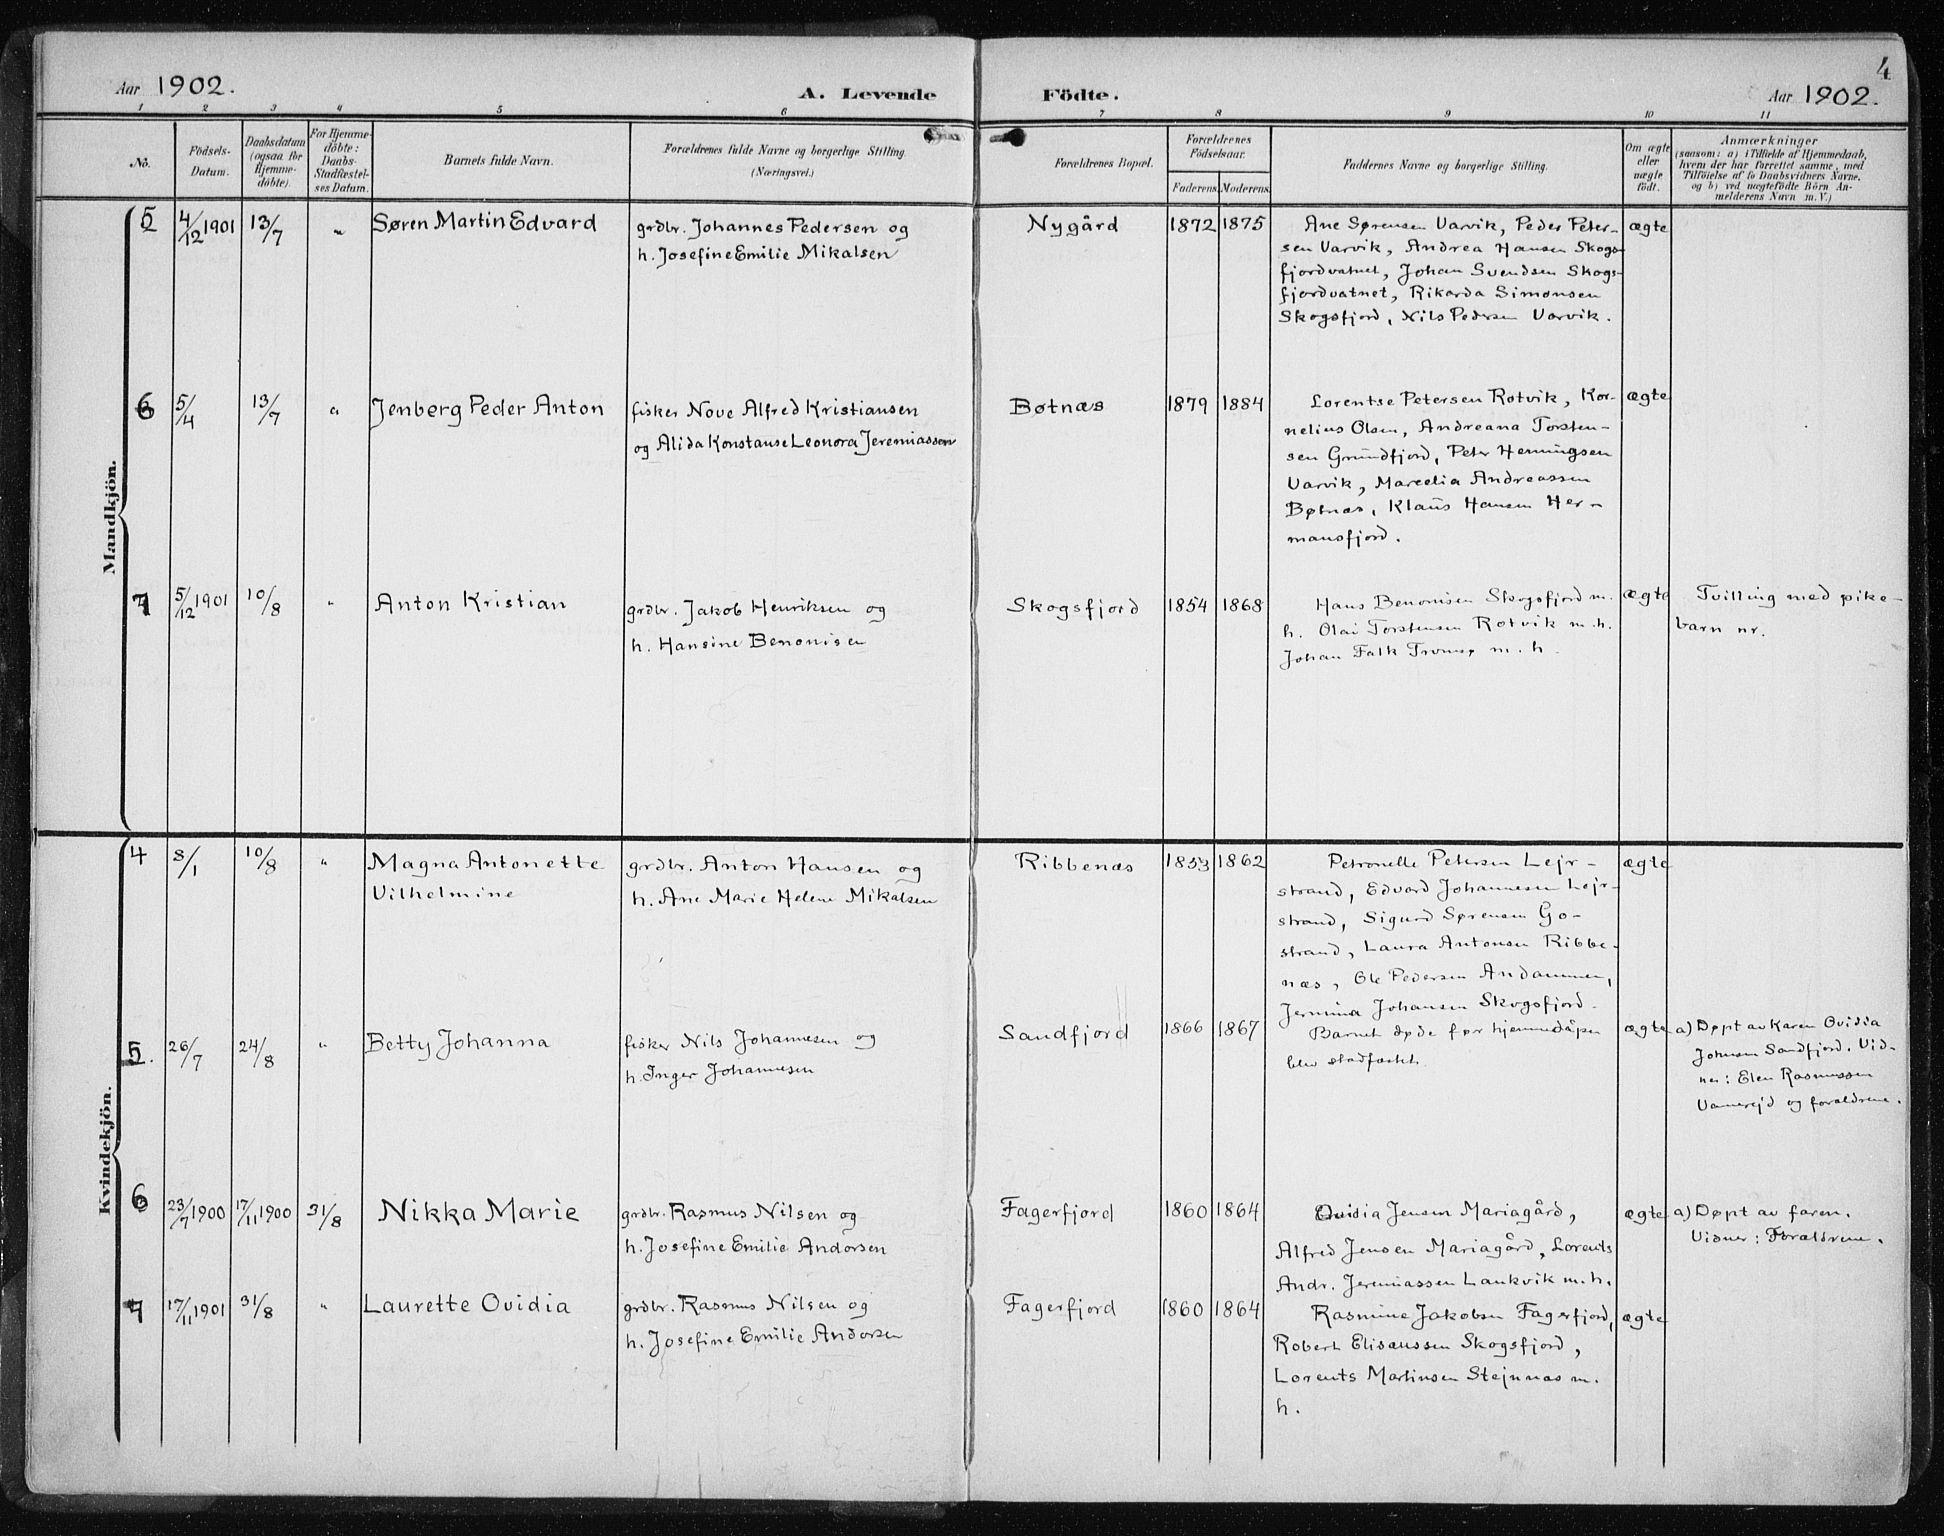 4
Aar 1902.
A. Levende
Födte.
Aar 1902.
1 2 3 4 5 6 7 8 9 10 11
No.
Födsels-
Datum.
Daabsdatum
(ogsaa for
Hjemme-
döbte).
For Hjemme-
döbte:
Daabs-
Stadfæstel-
ses Datum.
Barnets fulde Navn.
Forældrenes fulde Navne og borgerlige Stilling.
(Næringsvei.)
Forældrenes Bopæl.
Forældrenes
Födselsaar.
Faderens.
Moderens.
Faddernes Navne og borgerlige Stilling.
Om ægte
eller
uægte
födt.
Anmærkninger
(saasom: a) i Tilfælde af Hjemmedaab,
hvem der har forrettet samme, med
Tilföielse af to Daabsvidners Navne.
og b) ved uægtefödte Börn An-
melderens Navn m. V.)
Mandkjön.
5
4/12 1901
13/7
"
Søren Martin Edvard
grdbr. Johannes Pedersen og
h. Josefine Emilie Mikalsen
Nygård
1872
1875
Ane Sørensen Varvik, Peder Peter-
sen Varvik, Andrea Hansen Skogs-
fjordvatnet, Johan Svendsen Skogs-
fjordvatnet, Rikarda Simonsen
Skogsfjord, Nils Pedersen Varvik.
ægte
6
5/4
13/7
"
Jenberg Peder Anton
fisker Nove Alfred Kristiansen
og Alida Konstanse Leonora Jeremiassen
Bøtnæs
1879
1884
Lorentse Petersen Rotvik, Kor-
nelius Olsen, Andreana Torsten-
sen Grundfjord, Peter Henningsen
Varvik, Marcelia Andreassen
Bøtnæs, Klaus Hansen Her-
mansfjord.
ægte
7
5/12 1901
10/8
"
Anton Kristian
grdbr. Jakob Henriksen og
h. Hansine Benonisen
Skogsfjord
1854
1868
Hans Benonisen Skogsfjord m.
h. Olai Torstensen Rotvik m. h.
Johan Falk Tromsø m. h.
ægte
Tvilling med pike-
barn nr.
Kvindekjön.
4
8/1
10/8
"
Magna Antonette
Vilhelmine
grdbr. Anton Hansen og
h. Ane Marie Helene Mikalsen
Ribbenæs
1853
1862
Petronelle Petersen Lejr-
strand, Edvard Johannesen Lejr-
strand, Sigurd Sørensen Go-
strand, Laura Antonsen Ribbe-
næs, Ole Pedersen Andammen,
Jermina Johansen Skogsfjord.
ægte
5.
26/7
24/8
"
Betty Johanna
fisker Nils Johannesen og
h. Inger Johannesen
Sandfjord
1866
1867
Barnet døde før hjemmedåpen
blev stadfæstet.
ægte
a) Døpt av Karen Ovidia
Johnsen Sandfjord. Vid-
ner: Elen Rasmussen
og forældrene.
6
23/7 1900
17/11 1900
31/8
Nikka Marie
grdbr. Rasmus Nilsen og
h. Josefine Emilie Andorsen
Fagerfjord
1860
1864
Ovidia Jensen Mariagård,
Alfred Jensen Mariagård, Lorents
Andr. Jeremiassen Lankvik m. h.
ægte
a) Døpt av faren.
Vidner: Forældrene.
7
17/11 1901
31/8
"
Laurette Ovidia
grdbr. Rasmus Nilsen og
h. Josefine Emilie Andorsen
Fagerfjord
1860
1864
Rasmine Jakobsen Fagerfjord,
Robert Elisæussen Skogsfjord,
Lorents Martinsen Stejnnæs m.
h.
ægte